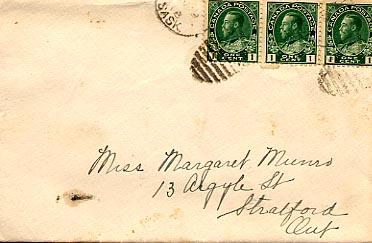 SASK
CANADA POSTAGE CANADA POSTAGE CANADA POSTAGE
1 ONE CENT 1 1 ONE CENT 1 1 ONE CENT 1
Miss Margaret Munro
13 Argyle St
Stratford
Ont